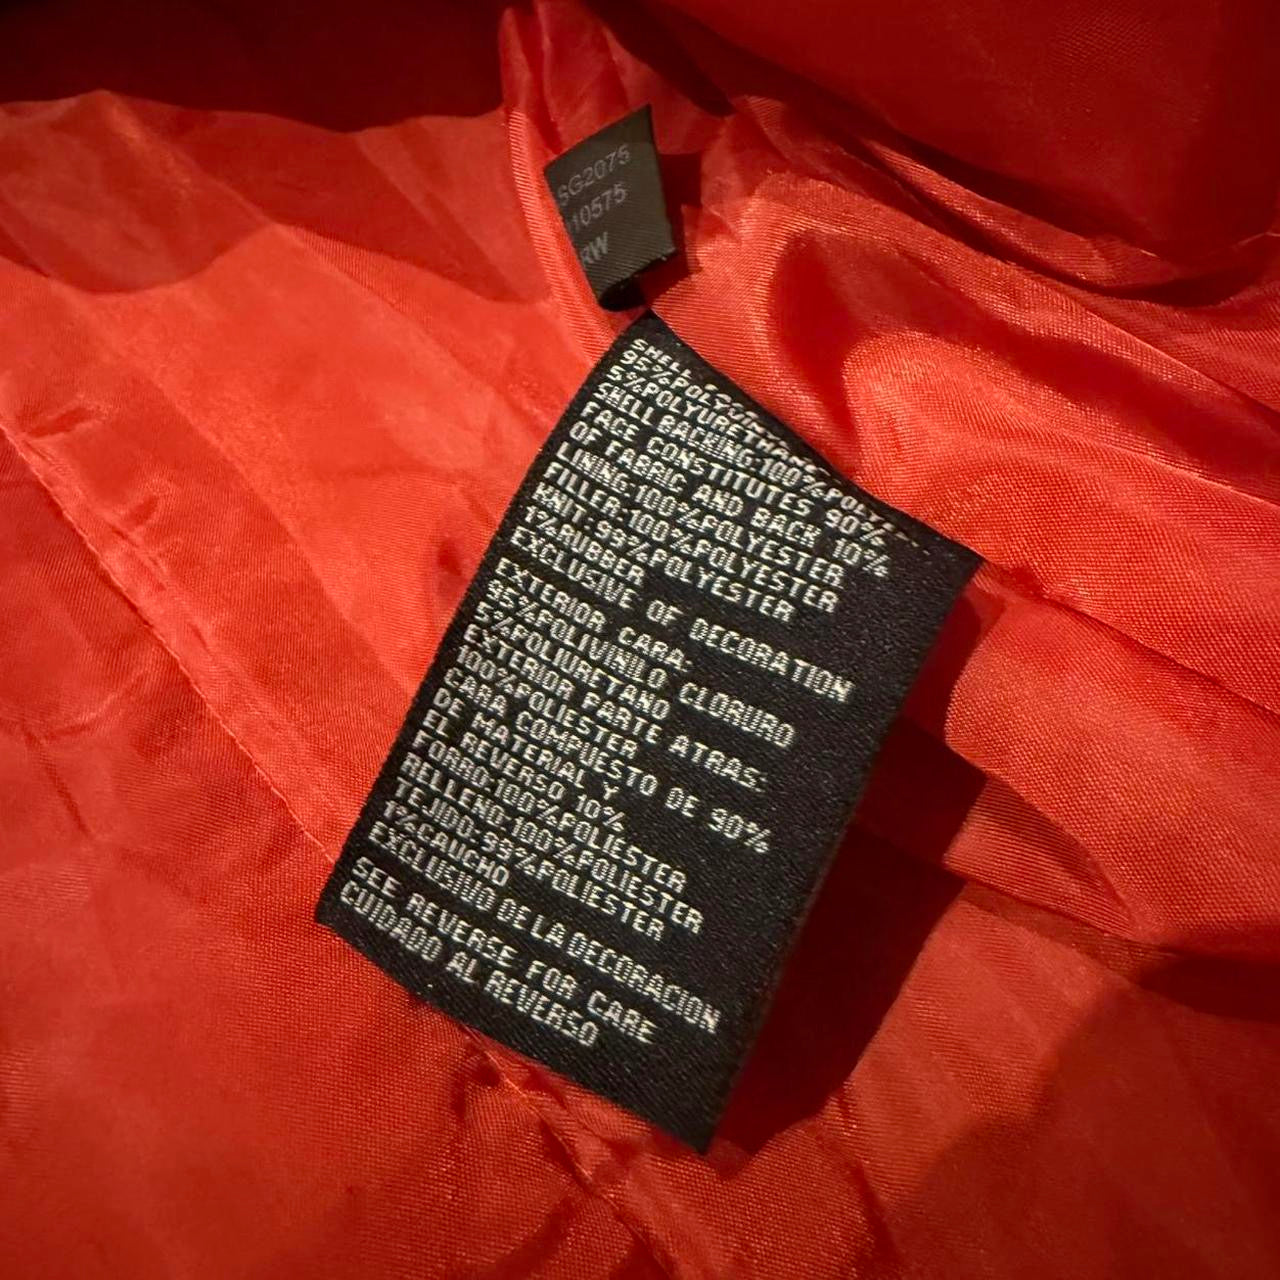 SG2075
10575
RW
SHELL
5%POLYURETHANE
SHELL BACKING:100%POLYESTER
FACE CONSTITUTES 90%
OF FABRIC AND BACK 10%
LINING:100%POLYESTER
FILLER:100%POLYESTER
KNIT:99%POLYESTER
1%RUBBER
EXCLUSIVE OF DECORATION
EXTERIOR CARA:
95%POLIVINILO CLORURO
5%POLIURETANO
EXTERIOR PARTE ATRAS:
100%POLIESTER
CARA COMPUESTO DE 90%
DE MATERIAL Y
EL REVERSO 10%
FORRO:100%POLIESTER
RELLENO:100%POLIESTER
TEJIDO:99%POLIESTER
1%CAUCHO
EXCLUSIVO DE LA DECORACION
SEE REVERSE FOR CARE
CUIDADO AL REVERSO